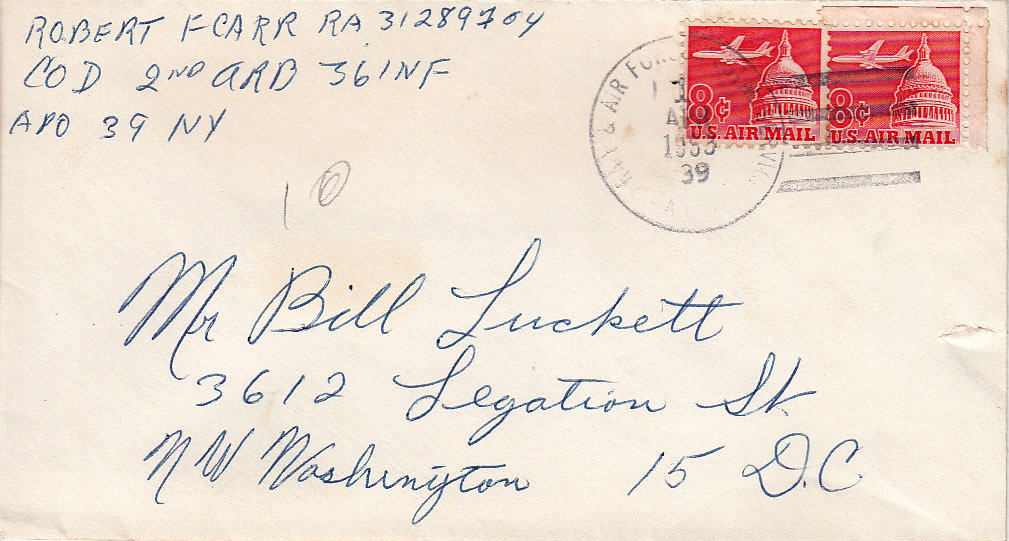 ROBERT F CARR RA 31289704
COD 2ND ARB 36 INF
APO 39 NY
8¢ U.S. AIR MAIL
8¢ U.S. AIR MAIL
& AIR FORCE
39
10
Mr Bill Luckett
3612 Legation St
N W Washington 15 D.C.